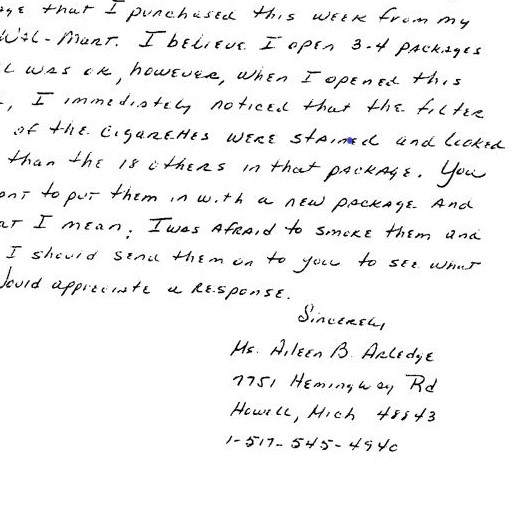 that I purchased this week from my
Wal-Mart. I believe I open 3-4 packages
was ok, however, when I opened this
, I immediately noticed that the filter
of the cigarettes were stained and looked
than the 18 others in that package. You
to put them in with a new package and
I mean. I was afraid to smoke them and
I should send them on to you to see what
appreciate a response.
Sincerely
Ms. Aileen B. Arledge
7751 Hemingway Rd
Howell, Mich 48843
1-517-545-4940